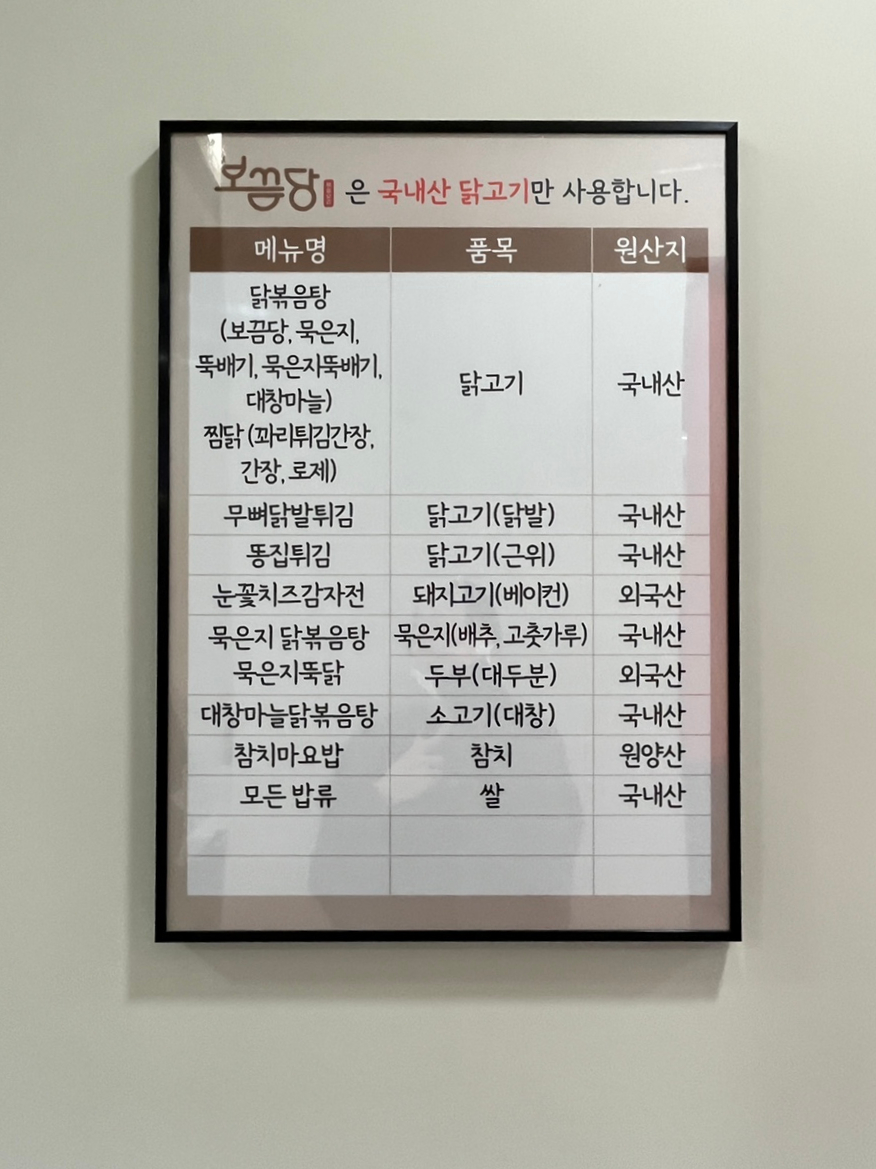 보끔당 은 국내산 닭고기만 사용합니다.
메뉴명 품목 원산지
닭볶음탕
(보끔당, 묵은지,
뚝배기, 묵은지뚝배기,
대창마늘)
찜닭 (꽈리튀김간장,
간장, 로제)
닭고기 국내산
무뼈닭발튀김 닭고기(닭발) 국내산
똥집튀김 닭고기(근위) 국내산
눈꽃치즈감자전 돼지고기(베이컨) 외국산
묵은지 닭볶음탕 묵은지(배추, 고춧가루) 국내산
묵은지뚝닭 두부(대두분) 외국산
대창마늘닭볶음탕 소고기(대창) 국내산
참치마요밥 참치 원양산
모든 밥류 쌀 국내산